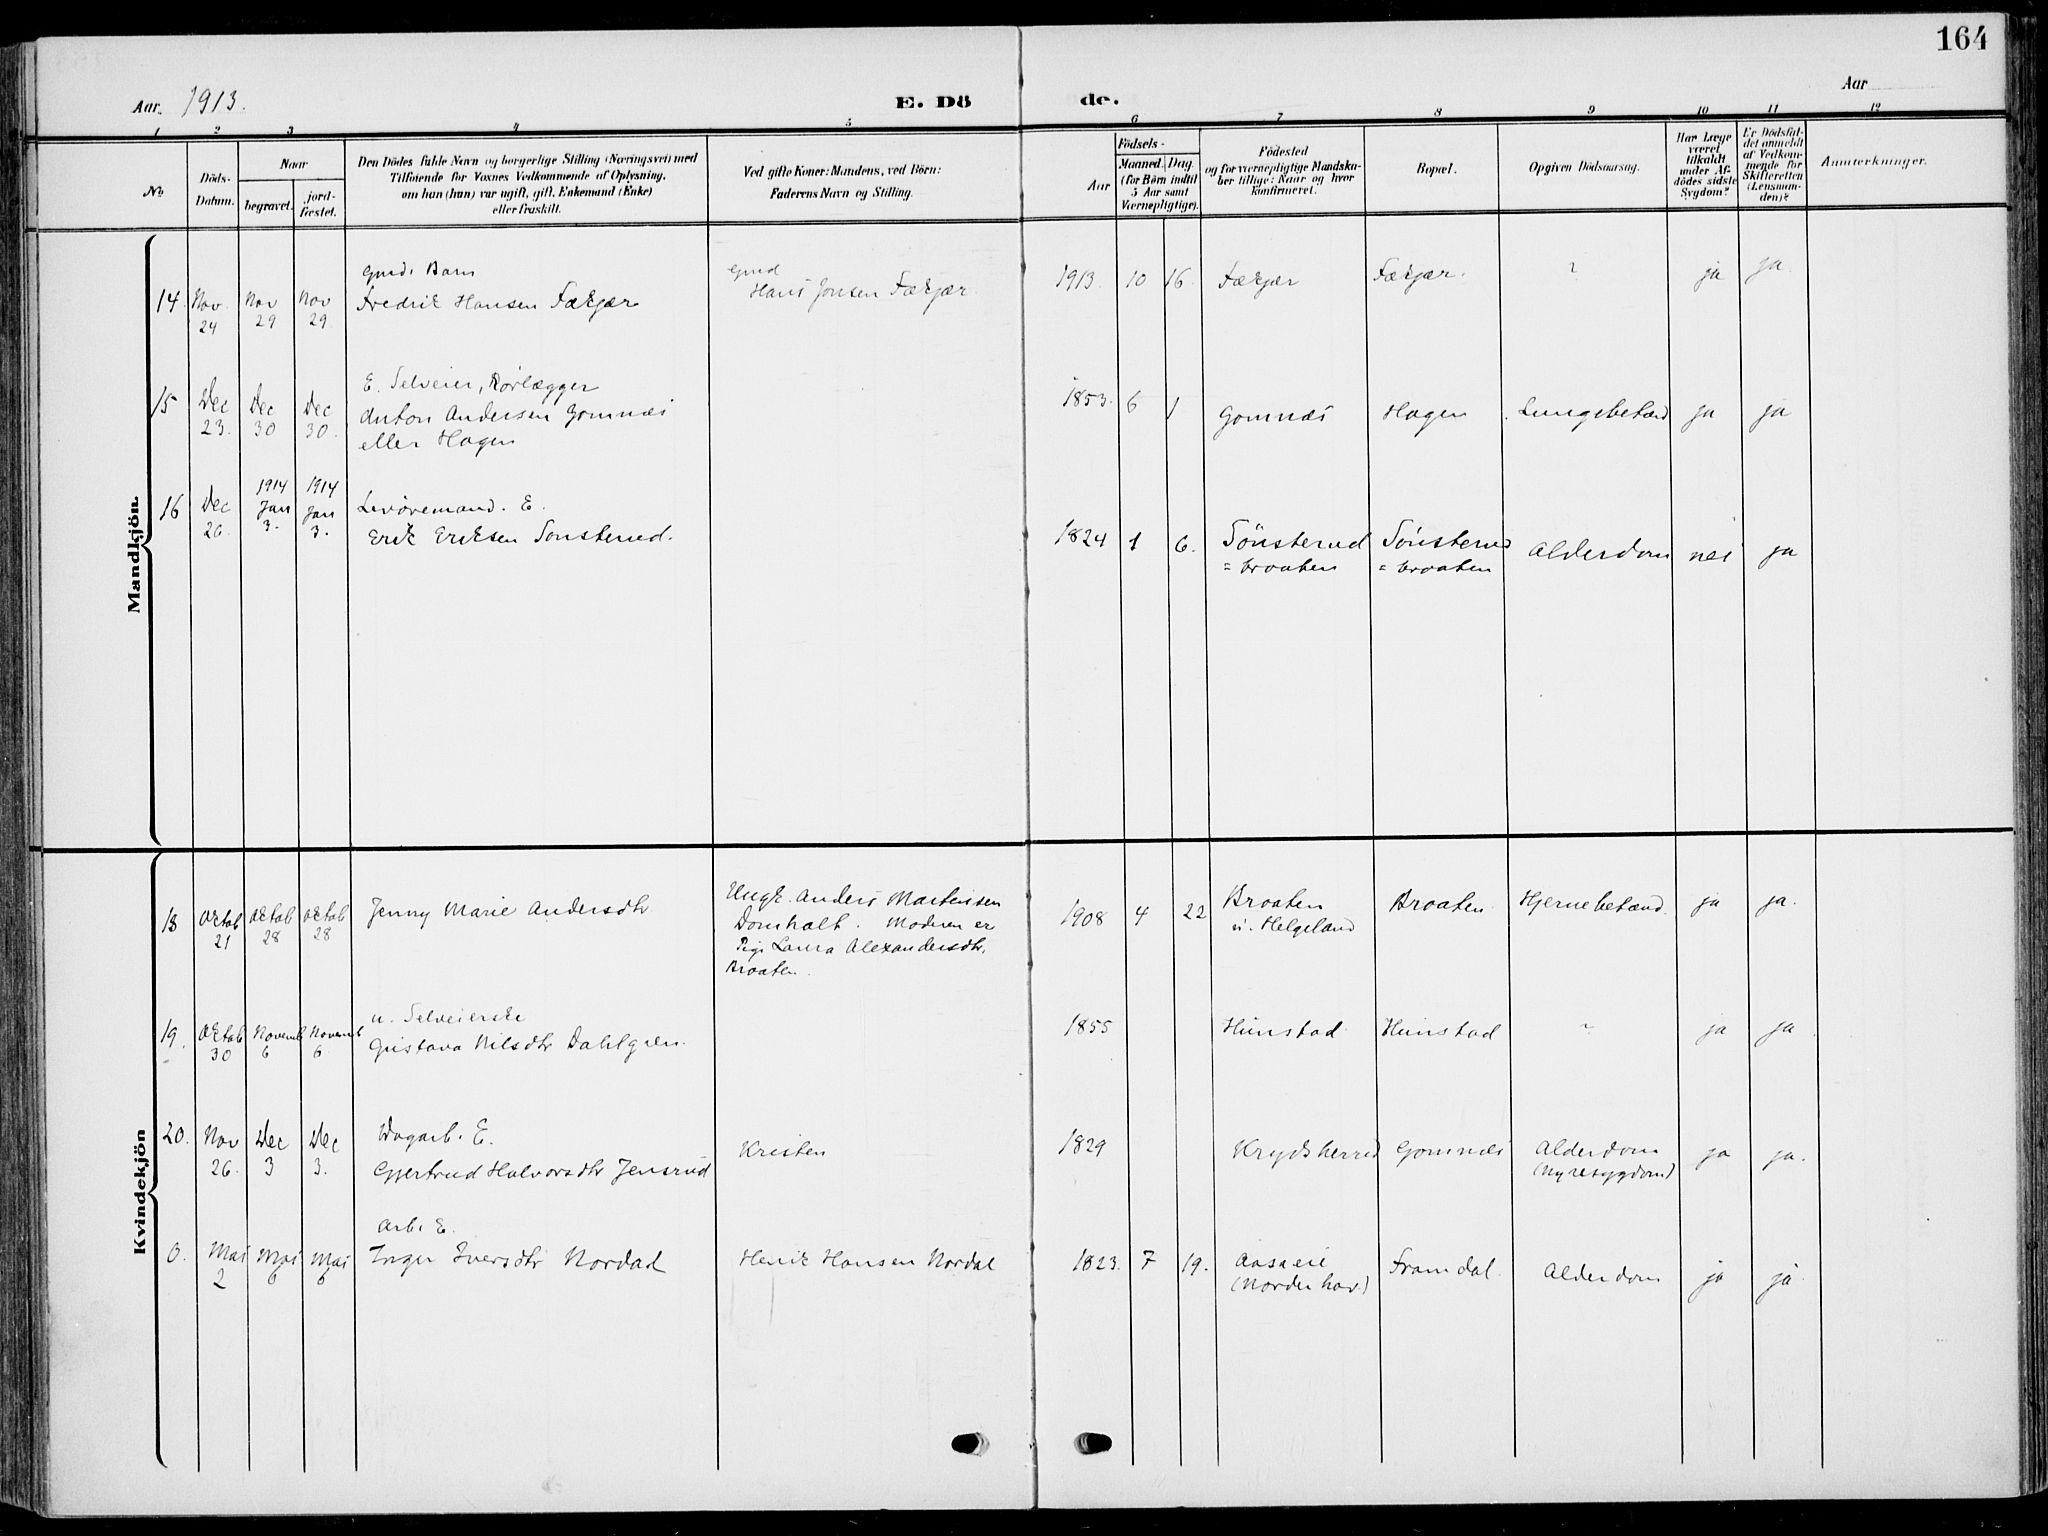 164
Aar. 1913.
E. Dö
de.
Aar
1 2 3 4 5 6 7 8 9 10 11 12
No
Döds-
Datum.
Naar
begravet.
jord-
fæstet.
Den Dödes fulde Navn og borgerlige Stilling (Næringsvei) med
Tilföiende for Voxnes Vedkommende af Oplysning,
om han (hun) var ugift, gift, Enkemand (Enke)
eller fraskilt.
Ved gifte Koner: Mandens, ved Börn:
Faderens Navn og Stilling.
Födsels-
Aar
Maaned. Dag.
(for Börn indtil
5 Aar samt
Værnepligtige).
Födested
og for værnepligtige Mandska-
ber tillige: Naar og hvor
konfirmeret.
Bopæl.
Opgiven Dödsaarsag.
Har Læge
været
tilkaldt
under Af-
dödes sidste
Sygdom?
Er Dödsfal-
det anmeldt
af Vedkom-
mende for
Skifteretten
(Lensman-
den)?
Anmærkninger.
Mandkjön.
gmds Barn
14 Nov. 24 Nov 29 Nov 29. Fredrik Hansen Fækjær
gmd
Hans Jonsen Fækjær.
1913. 10 16. Fækjær Fækjær. ? ja ja.
E. Selveier, Rørlægger
15 Dec 23. Dec 30 Dec 30. Anton Andersen Gomnæs
eller Hagen
1853. 6 1 Gomnæs Hagen Lungebetænd ja ja
16 Dec 26. 1914 Jan 3. 1914 Jan 3. Livøremand. E.
Erik Eriksen Sønsterud.
1824 1 6. Sønsterud Sønsterud Alderdom nei ja
= braaten = braaten
Kvindekjön
18 Oktob 21 Oktob 28 Oktob 28 Jenny Marie Andersdtr
Ungk. Anders Martinsen
Domholt. Moderen er
Pige Laura Alexandersdtr.
Braaten.
1908 4 22 Braaten Braaten Hjernebetænd. ja ja.
u. Helgeland
u. Selveierske
19. Oktob 30 Novemb 6 Novemb 6 Gustava Nilsdtr Dahlgren.
1855 Hunstad Hunstad ? ja ja
Dagarb. E.
20. Nov 26. Dec 3 Dec 3. Gjertrud Halvorsdtr Jensrud
Kristen
1829 Krydsherred Gomnæs Alderdom ja ja.
(Nyresygdom)
Arb. E.
0. Mai 2 Mai 6 Mai 6 Inger Iversdtr Nordal
Henrik Hansen Nordal
1823. 7 19. Aasaeie Framdal. Alderdom ja ja.
(Norderhov.)